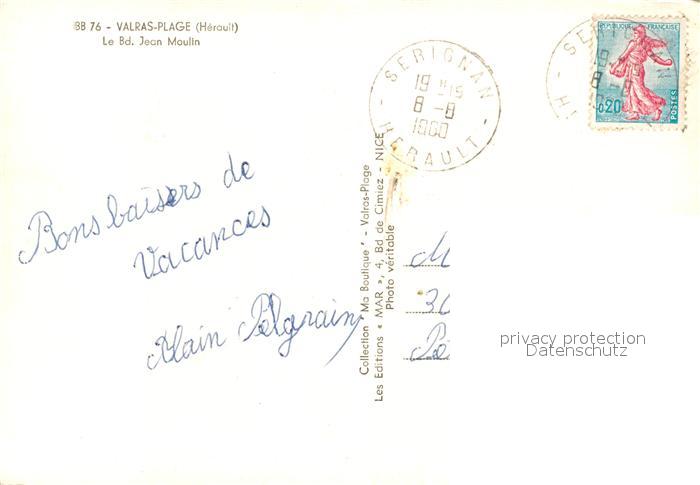 BB 76 - VALRAS-PLAGE (Hérault)
Le Bd. Jean Moulin
SERIGNAN
19 H15
8 - 8
1960
HERAULT
REPUBLIQUE FRANÇAISE
0,20
POSTES
Bons baisers de
Vacances
Alain Pelgrain
Collection "Ma Boutique" - Valras-Plage
Les Editions « MAR », 4, Bd de Cimiez - NICE
Photo véritable
M
31
privacy protection
Datenschutz